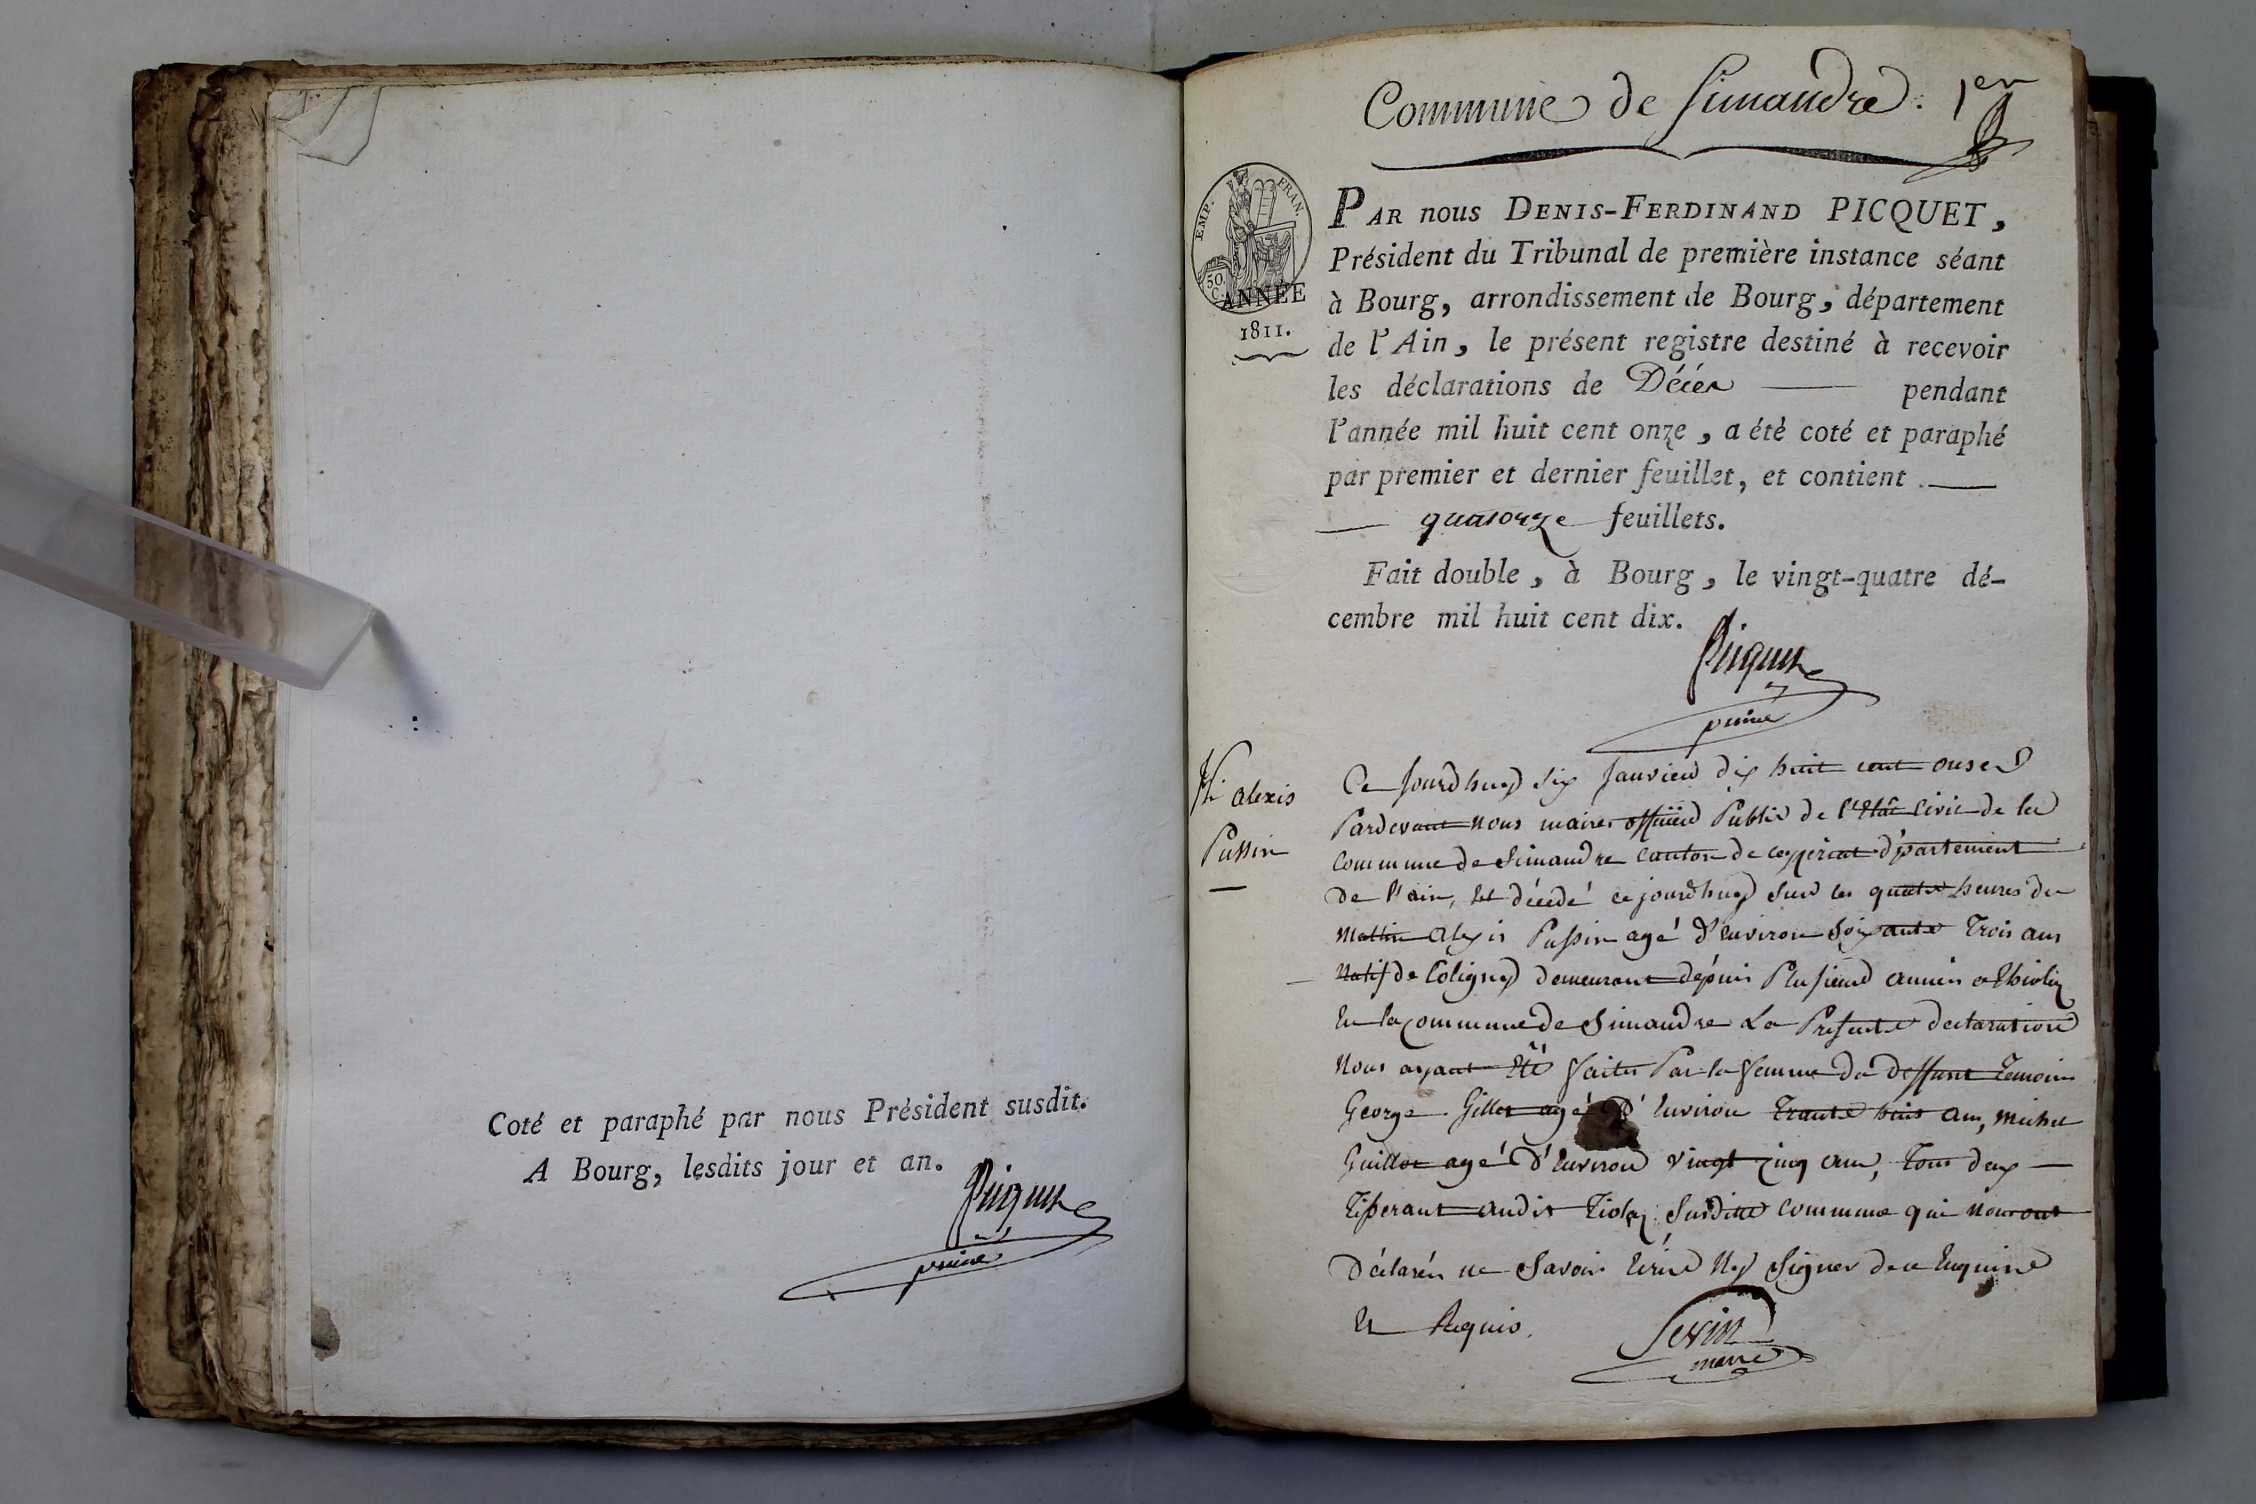 Coté et paraphé par nous Président susdit.
A Bourg, lesdits jour et an.
Picquet
Commune de Simandre. 1er
EMP. FRAN.
50. C.
ANNÉE
1811.
PAR nous DENIS-FERDINAND PICQUET,
Président du Tribunal de première instance séant
à Bourg, arrondissement de Bourg, département
de l'Ain, le présent registre destiné à recevoir
les déclarations de Décès pendant
l'année mil huit cent onze, a été coté et paraphé
par premier et dernier feuillet, et contient
quatorze feuillets.
Fait double, à Bourg, le vingt-quatre dé-
cembre mil huit cent dix.
Picquet
alexis
Pussin
Ce Jourdhuy six Janvier dix huit cent onse
Pardevant nous maire officier Public de l'Etât Civic de la
commune de Simandre canton de ceyzeriat département
De l'ain, Est décédé ce jourdhuy sur les quatre heures du
Mattin alexis Pussin agé d'Environ Soixante Trois ans
Natif de Coligny demeurant dépuis Plusieurs années a
En la commune de Simandre La Presente declaration
Nous ayant Eté faite Par la femme du deffunt Temoins
George Gillet agé D'Environ Trante huit ans, michel
Guillot agé D'Environ vingt cinq ans, Tous deux
Tisserant audit susditte commune qui nous ont
Déclarés ne Savoir Ecrire Ny Signer de ce Enquirre
Et Requis.
Sevin
maire